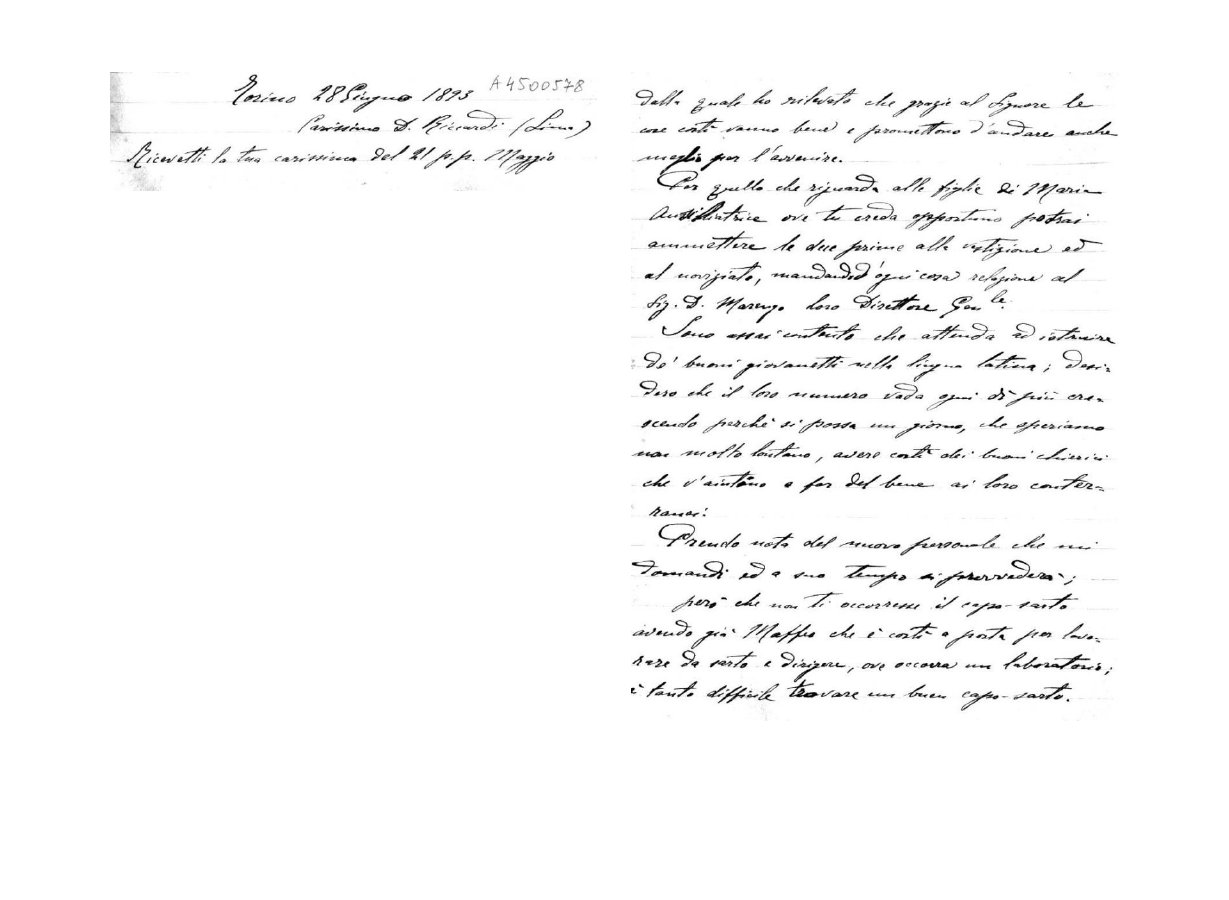 A4500578
Torino 28 Giugno 1893
Carissimo D. Riccardi (Lima)
Ricevetti la tua carissima del 21 p.p. Maggio
dalla quale ho rilevato che grazie al Signore le
cose costì vanno bene e promettono d'andare anche
meglio per l'avvenire.
Per quello che riguarda alle figlie di Maria
Ausiliatrice ove tu creda opportuno potrai
ammettere le due prime alla vestizione ed
al noviziato, mandando d'ogni cosa relazione al
Sig. D. Marengo loro Direttore Gen.le.
Sono assai contento che attenda ad istruire
de' buoni giovanetti nella lingua latina; desi-
dero che il loro numero vada ogni dì più cre-
scendo perchè si possa un giorno, che speriamo
non molto lontano, avere costì dei buoni chierici
che v'aiutino a far del bene ai loro conter-
ranei.
Prendo nota del nuovo personale che mi
domandi ed a suo tempo si provvederà;
però che non ti occorresse il capo-sarto
avendo già Maffeo che è costì a posta per lavo-
rare da sarto e dirigere, ove occorra un laboratorio;
è tanto difficile trovare un buon capo-sarto.